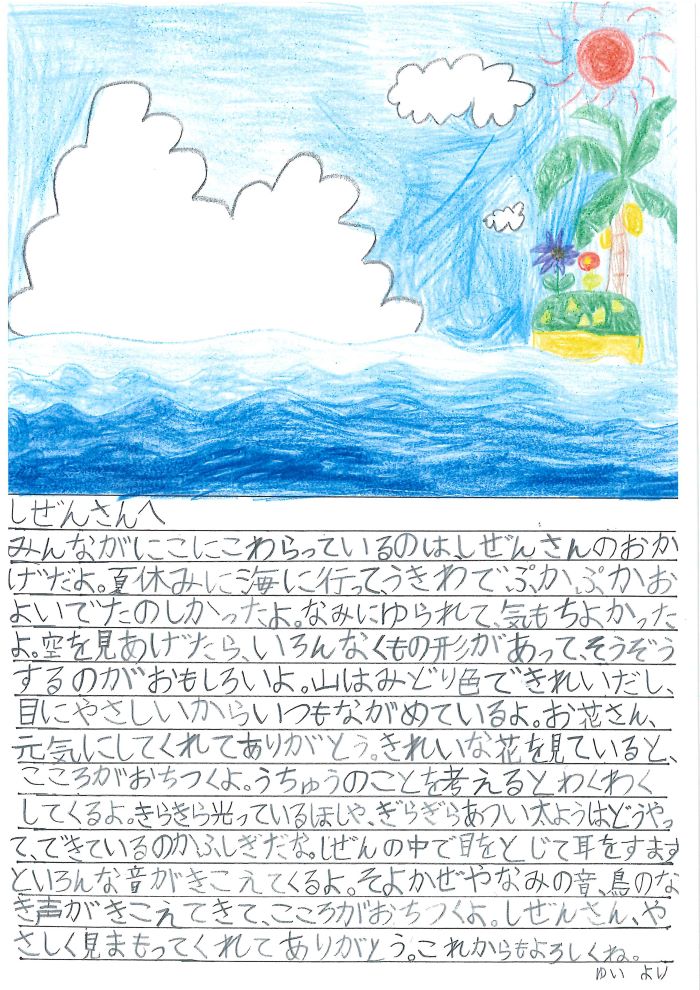 しぜんさんへ
みんながにこにこわらっているのは、しぜんさんのおか
げだよ。夏休みに海に行って、うきわでぷかぷかお
よいでたのしかったよ。なみにゆられて、気もちよかった
よ。空を見あげたら、いろんなくもの形があって、そうぞう
するのがおもしろいよ。山はみどり色できれいだし、
目にやさしいからいつもながめているよ。お花さん、
元気にしてくれてありがとう。きれいな花を見ていると、
こころがおちつくよ。うちゅうのことを考えるとわくわく
してくるよ。きらきら光っているほしや、ぎらぎらあつい太ようはどうやっ
て、できているのかふしぎだな。しぜんの中で目をとじて耳をすます
といろんな音がきこえてくるよ。そよかぜやなみの音、鳥のな
き声がきこえてきて、こころがおちつくよ。しぜんさん、や
さしく見まもってくれてありがとう。これからもよろしくね。
ゆい より